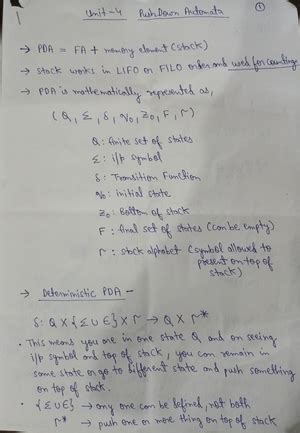 Unit-4 PushDown Automata 1
→ PDA = FA + memory element (stack)
→ stack works in LIFO or FILO order and used for counting
→ PDA is mathematically represented as,
(Q, Σ, δ, q₀, Z₀, F, Γ)
Q: finite set of states
Σ: i/p symbol
δ: Transition Function
q₀: initial state
Z₀: Bottom of stack
F: final set of states (can be empty)
Γ: stack alphabet (symbol allowed to
present on top of
stack)
→ Deterministic PDA -
δ: Q X {Σ U ∈} X Γ → Q X Γ*
• This means you are in one state Q and on seeing
i/p symbol and top of stack, you can remain in
same state or go to different state and push something
on top of stack.
• {Σ U ∈} → any one can be defined, not both.
Γ* → push one or more thing on top of stack